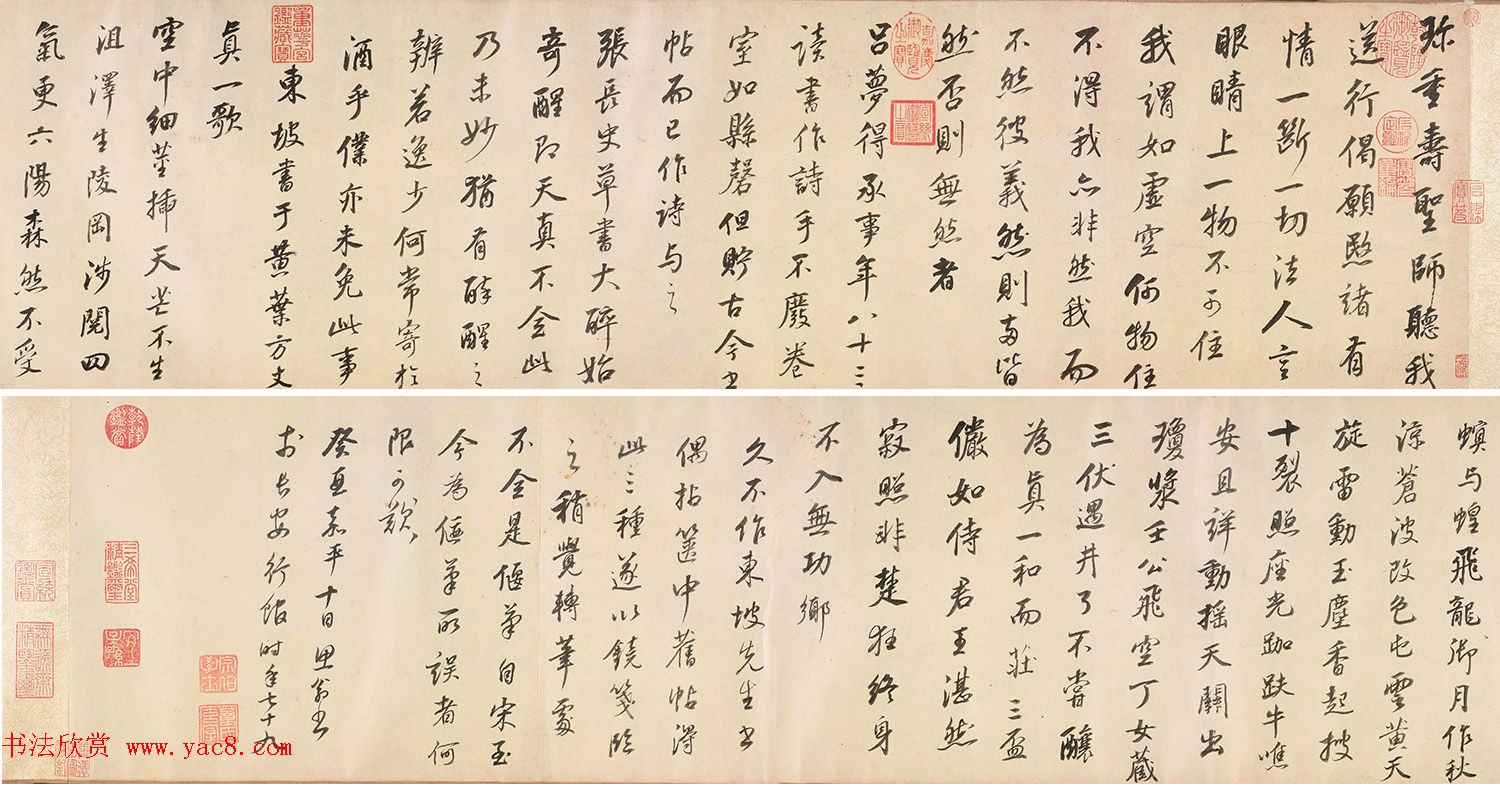 珎重壽聖師聽我
送行偈願愍諸有
情一斷一切法人言
眼睛上一物不可住
我謂如虛空何物住
不得我亦非然我而
不然彼義然則両皆
然否則無然者
呂夢得承事年八十三
读書作詩手不廢卷
室如縣磬但貯古今书
帖而已作诗与之
張長史草書大醉始
奇醒即天真不全此
乃未妙猶有醉醒之
辨若逸少何常寄於
酒乎僕亦未免此事
東坡書于黄葉方丈
真一歌
空中細莖插天芒不生
沮澤生陵岡涉閱四
氣更六陽森然不受
螟与蝗飛龍御月作秋
涼蒼波改色屯雲黄天
旋雷動玉塵香起披
十裂照座光跏趺牛噍
安且詳動搖天關出
瓊漿壬公飛空丁女藏
三伏遇井了不嘗釀
為真一和而莊三盃
儼如侍君王湛然
寂照非楚狂終身
不入無功鄉
久不作東坡先生书
偶拈篋中舊帖得
此三種遂以鏡箋临
之稍覺轉筆處
不全是偃筆自宋至
今為偃筆所誤者何
限可歎
癸酉嘉平十日思翁书
於長安行館时年七十九
嘉慶御覽之寶
乾隆鑑賞
三希堂精鑑璽
宜子孫
书法欣赏 www.yac8.com